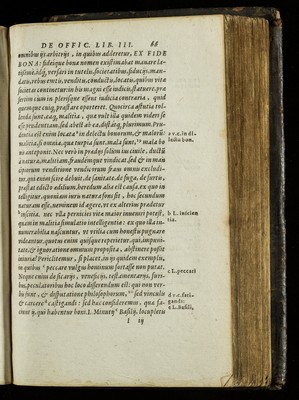 DE OFFIC. LIB. III. 66
omnibus ijs arbitrijs, in quibus adderetur, EX FIDE
BONA: fideíque bonæ nomen existimabat manare la-
tissimè, idq́; versari in tutelis, societatibus, fiducijs, man-
datis, rebus emtis, venditis, conductis, locatis, quibus vitæ
societas contineretur: in his magni esse iudicis, statuere, præ
sertim cùm in plerisque essent iudicia contraria, quid
quemque cuíq; præstare oporteret. Quocirca astutiæ tol-
lendæ sunt, eaq́; malitia, quæ vult illa quidem videri se
esse prudentiam, sed abest ab ea, distatq́; plurimùm. Pru-
dentia est enim locata in delectu bonorum, & malorū:
malitia, si omnia, quæ turpia sunt, mala sunt, mala bo
nis anteponit. Nec verò in prædijs solùm ius ciuile, ductū
à natura, malitiam, fraudemque vindicat: sed & in man
cipiorum venditione venditoris fraus omnis excludi-
tur. qui enim scire debuit, de sanitate, de fuga, de furtis,
præstat edicto ædilium. heredum alia est causa. ex quo in
telligitur, quoniam iuris natura fons sit, hoc secundum
naturam esse, neminem id agere, vt ex alterius prædetur
inscitia. nec vlla pernicies vitæ maior inueniri potest,
quàm in malitia simulatio intelligentiæ: ex quo illa in-
numerabilia nascuntur, vt vtilia cum honestis pugnare
videantur. quotus enim quisque reperietur, qui, impuni-
tate, & ignoratione omnium proposita, abstinere possit
iniuria? Periclitemur, si placet, in ijs quidem exemplis,
in quibus peccare vulgus hominum fortasse non putat.
Neque enim de sicarijs, veneficijs, testamentarijs, furi-
bus, peculatoribus hoc loco disserendum est: qui non ver-
bis sunt, & disputatione philosophorum, sed vinculis
& carcere castigandi: sed hæc consideremus, quæ fa-
ciunt ij, qui habentur boni. L. Minutij Basilij, locupletis
I iij
a v.c. in di-
lectu bon.
b L. inscien
tia
c L. peccari
d v.c. fati-
gandi:
e L. Basili,